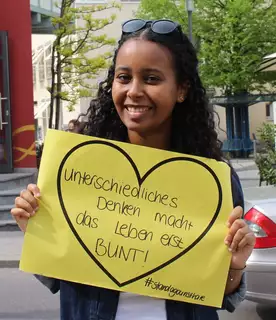 Unterschiedliches
Denken macht
das Leben erst
BUNT!
#Standagainsthate